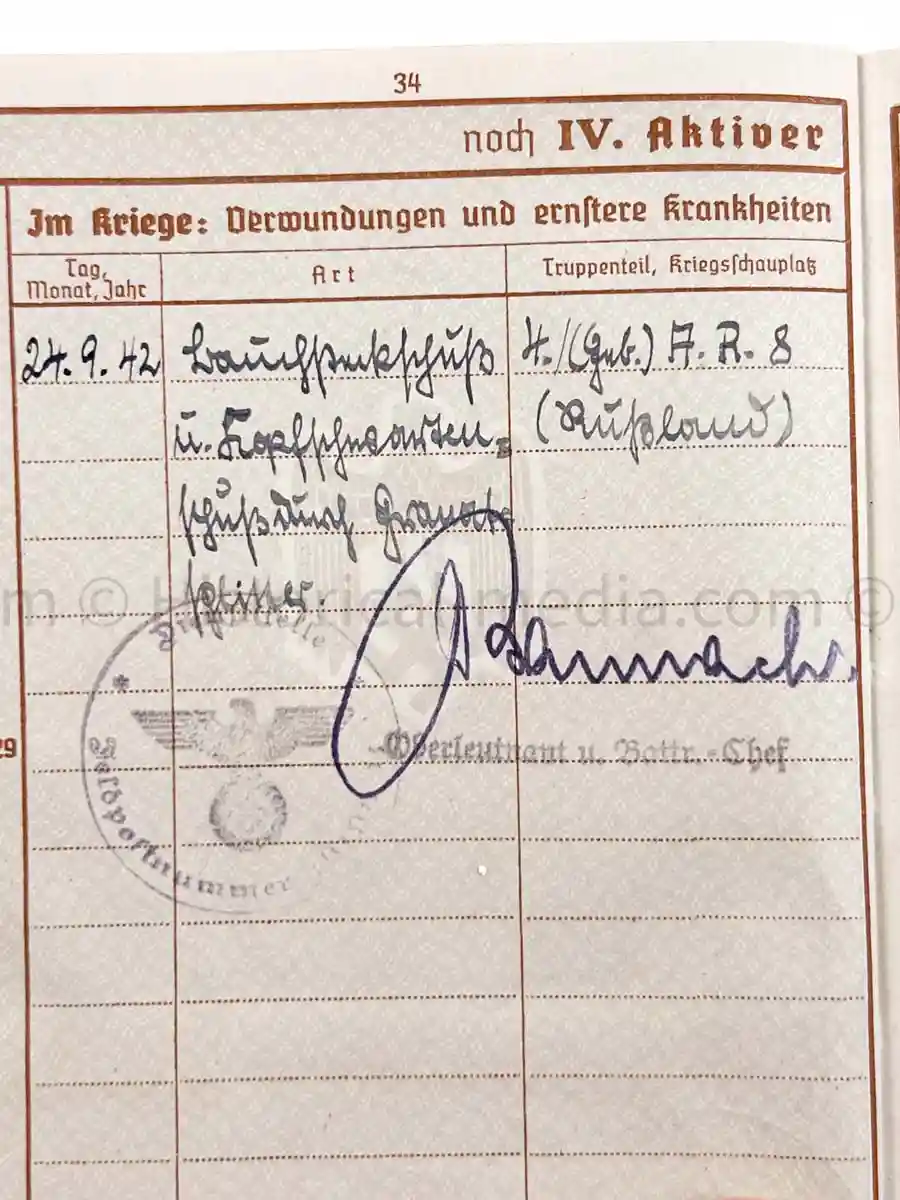 34
noch IV. Aktiver
Im Kriege: Verwundungen und ernstere Krankheiten
Tag, Monat, Jahr
Art
Truppenteil, Kriegsschauplatz
24. 9. 42 Bauchsteckschuß 4./(Geb.) A. R. 8
u. Kopfschwarten= (Rußland)
schuß durch Granat
splitter.
m © Historicalmedia.com ©
Dienststelle
Feldpostnummer
29
Oberleutnant u. Battr.-Chef